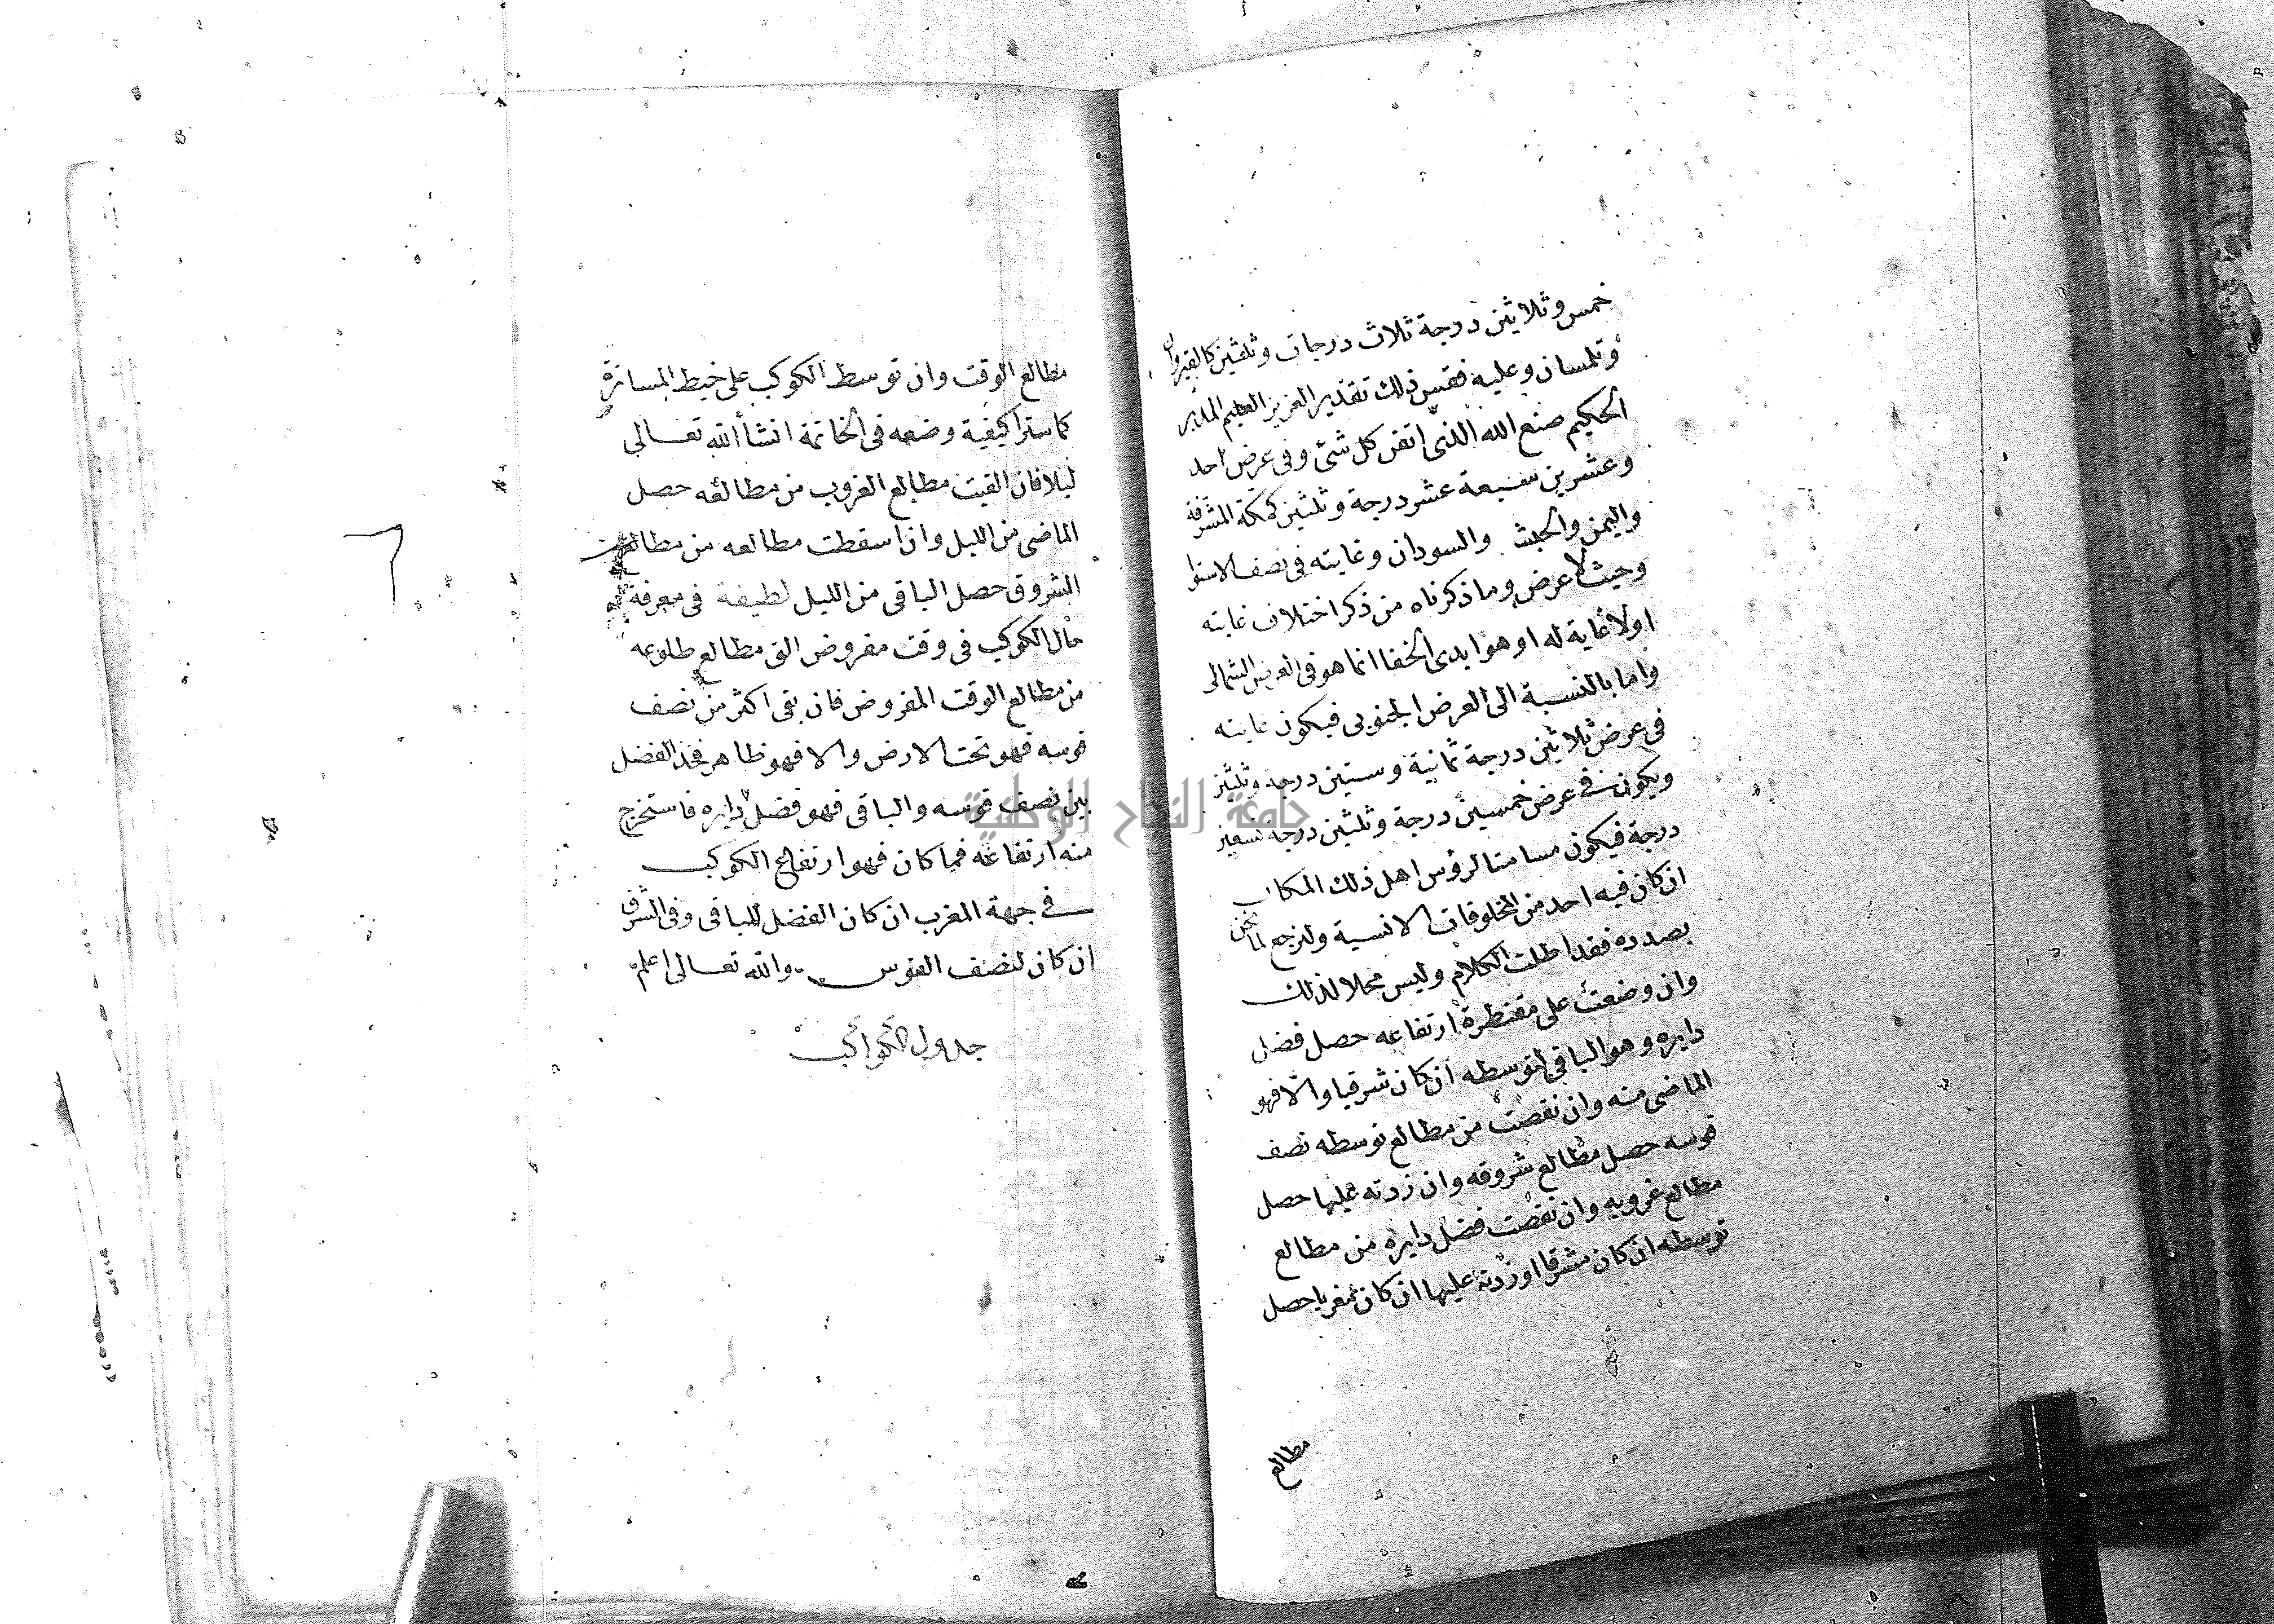 خمس وثلاثين درجة ثلاث درجات وثلثين كالقيروان
وتلمسان وعليه فقس ذلك تقدير العزيز العليم المدبر
الحكيم صنع الله الذى اتقن كل شئ وفى عرض احد
وعشرين سبعة عشر درجة وثلثين كمكة المشرفة
واليمن والحبشة والسودان وغايته فى نصف الاستوا
وحيث لا عرض وما ذكرناه من ذكر اختلاف غايته
اولا غاية له او هو ابدى الخفا انما هو فى العرض الشمالى
واما بالنسبة الى العرض الجنوبى فيكون غايته
فى عرض ثلاثين درجة ثمانية وستين درجة وثلثين
ويكون فى عرض خمسين درجة وثلثين درجة تسعين
درجة فيكون مسامتا لرؤس اهل ذلك المكان
ان كان فيه احد من المخلوقات الانسية ولنرجع لما نحن
بصدده فقد اطلت الكلام وليس محلا لذلك
وان وضعت على مقنطرة ارتفاعه حصل فضل
دايره وهو الباقى لتوسطه ان كان شرقيا والا فهو
الماضى منه وان نقصت من مطالع توسطه نصف
قوسه حصل مطالع شروقه وان زدته عليها حصل
مطالع غروبه وان نقصت فضل دايره من مطالع
توسطه ان كان مشرقا او زدته عليها ان كان مغربا حصل
مطالع
مطالع الوقت وان توسط الكوكب على خيط المساترة
كما سترا كيفية وضعه فى الخاتمة انشأ الله تعالى
ليلا فان القيت مطالع الغروب من مطالعه حصل
الماضى من الليل وان اسقطت مطالعه من مطالع
الشروق حصل الباقى من الليل لطيفة فى معرفة
حال الكوكب فى وقت مفروض الق مطالع طلوعه
من مطالع الوقت المفروض فان بقى اكثر من نصف
قوسه فهو تحت الارض والا فهو ظاهر فخذ الفضل
بين نصف قوسه والباقى فهو فضل دايره فاستخرج
منه ارتفاعه فما كان فهو ارتفاع الكوكب
فى جهة المغرب ان كان الفضل للباقى وفى الشرق
ان كان لنصف القوس والله تعالى اعلم
جدول الكواكب
جامعة النجاح الوطنية